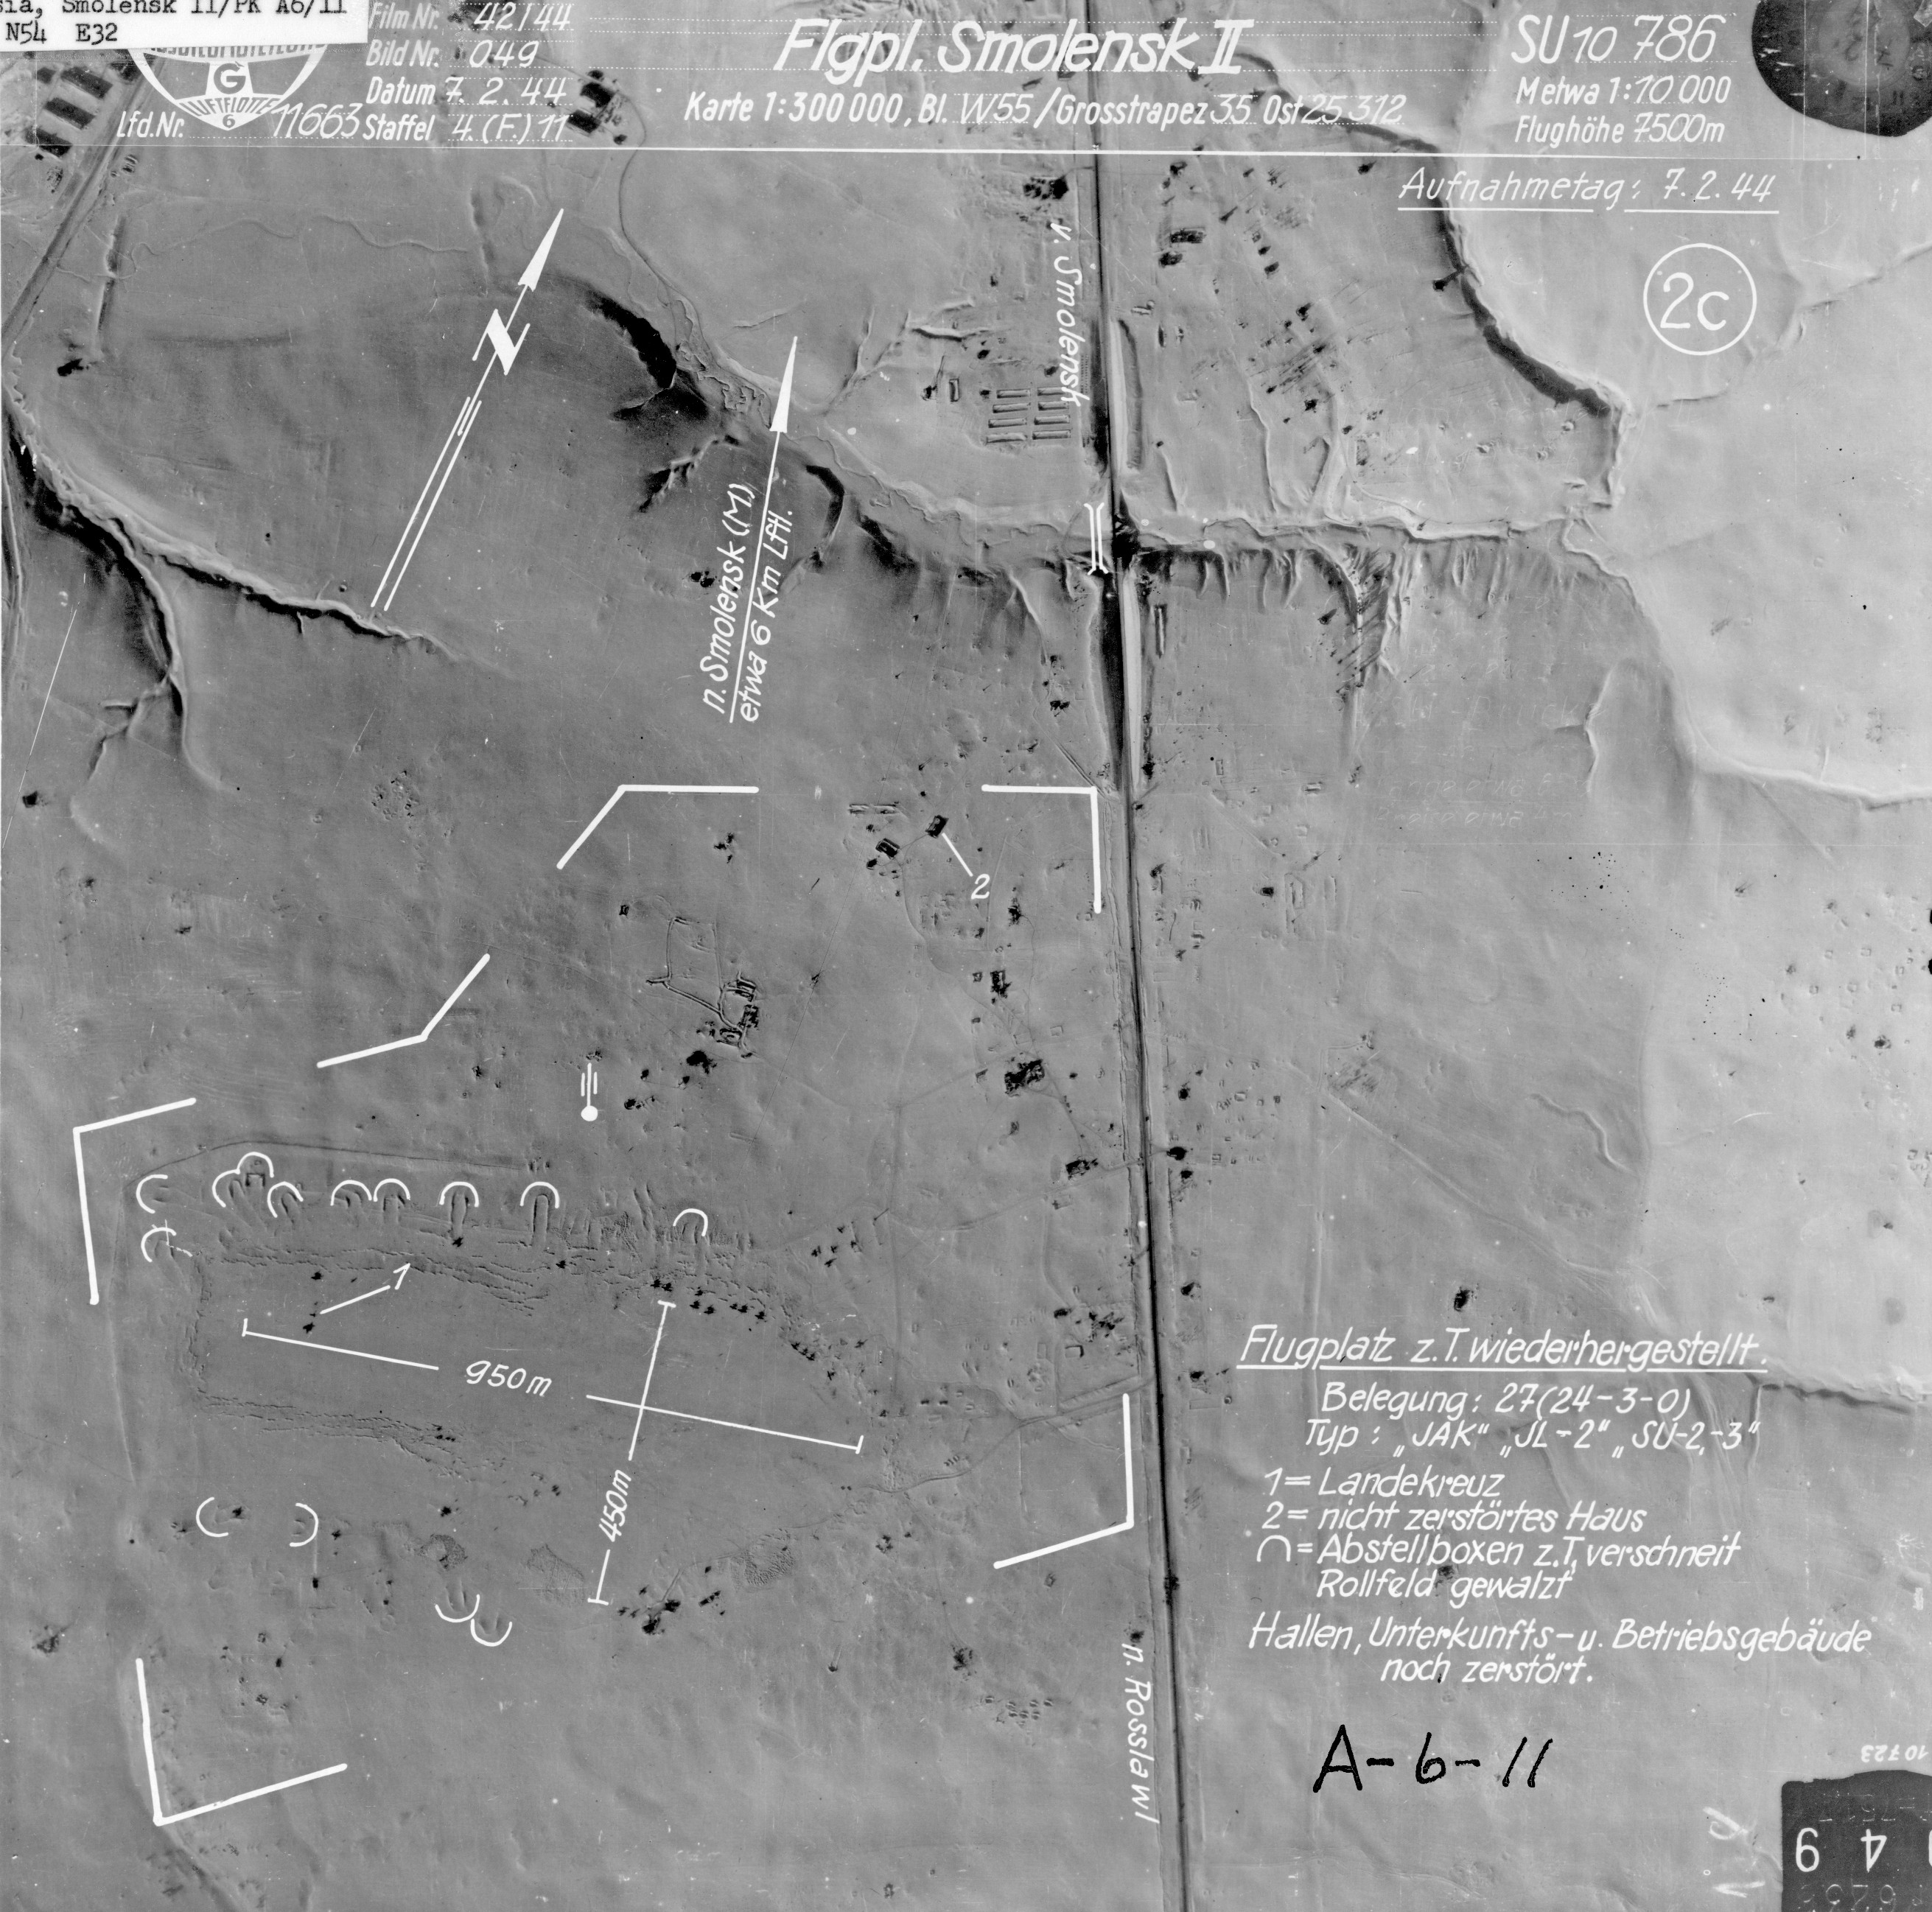 Smolensk II/PK A6/11
N54 E32
G
LUFTFLOTTE
6
Lfd.Nr. 11663
Film Nr. 42/44
Bild Nr. 049
Datum 7. 2. 44
Staffel 4.(F.) 11
Flgpl. Smolensk II
Karte 1:300 000, Bl. W55/Grosstrapez 35 Ost 25 312
SU 10 786
M etwa 1:10 000
Flughöhe 7500m
Aufnahmetag: 7. 2. 44
2c
v. Smolensk
N
n. Smolensk (M)
etwa 6 Km Lftl.
2
1
950m
450m
Flugplatz z.T. wiederhergestellt.
Belegung: 27(24-3-0)
Typ: „JAK" „JL-2" „SU-2,-3"
1= Landekreuz
2= nicht zerstörtes Haus
= Abstellboxen z.T. verschneit
Rollfeld gewalzt
Hallen, Unterkunfts- u. Betriebsgebäude
noch zerstört.
n. Rosslawl
A-6-11
10723
4 9